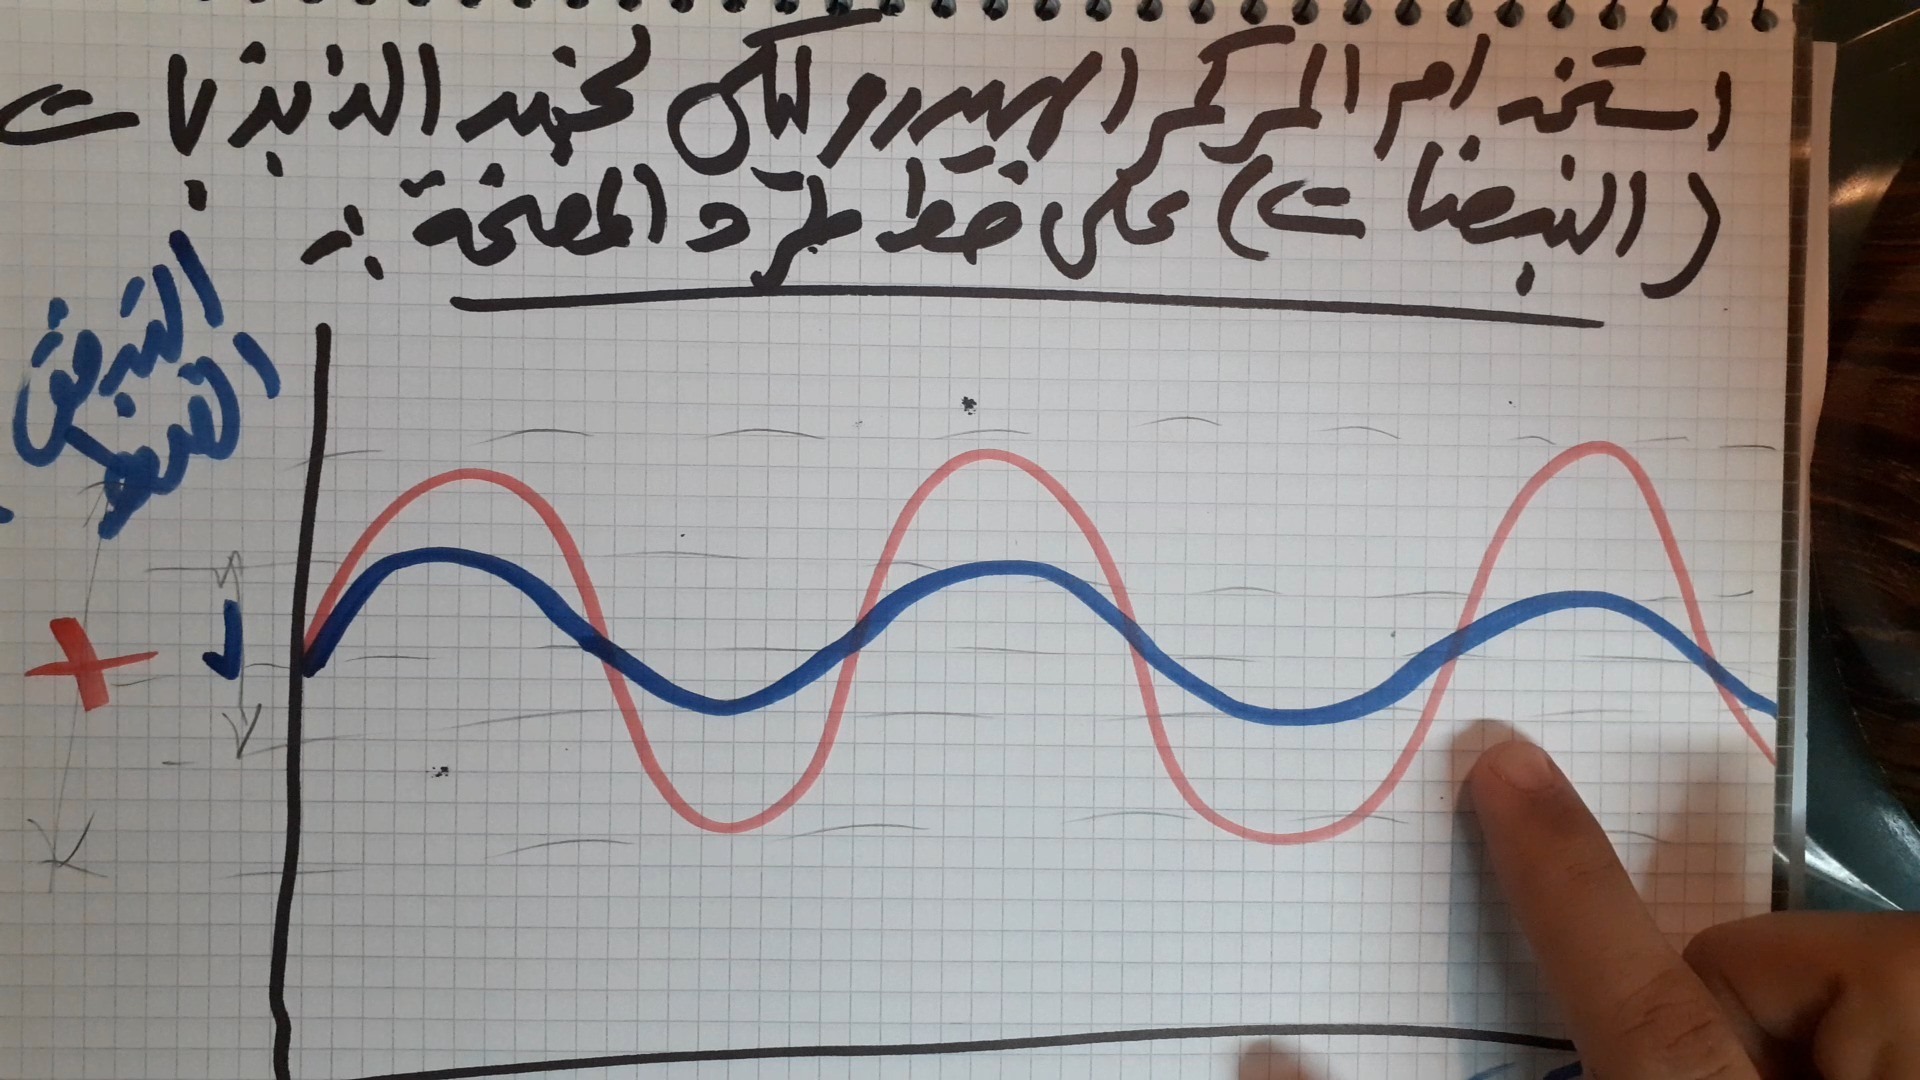 استخدام المركم الهيدروليكي لتخميد الذبذبات
(النبضات) على خط طرد المضخة :ـ
التدفق
الضغط